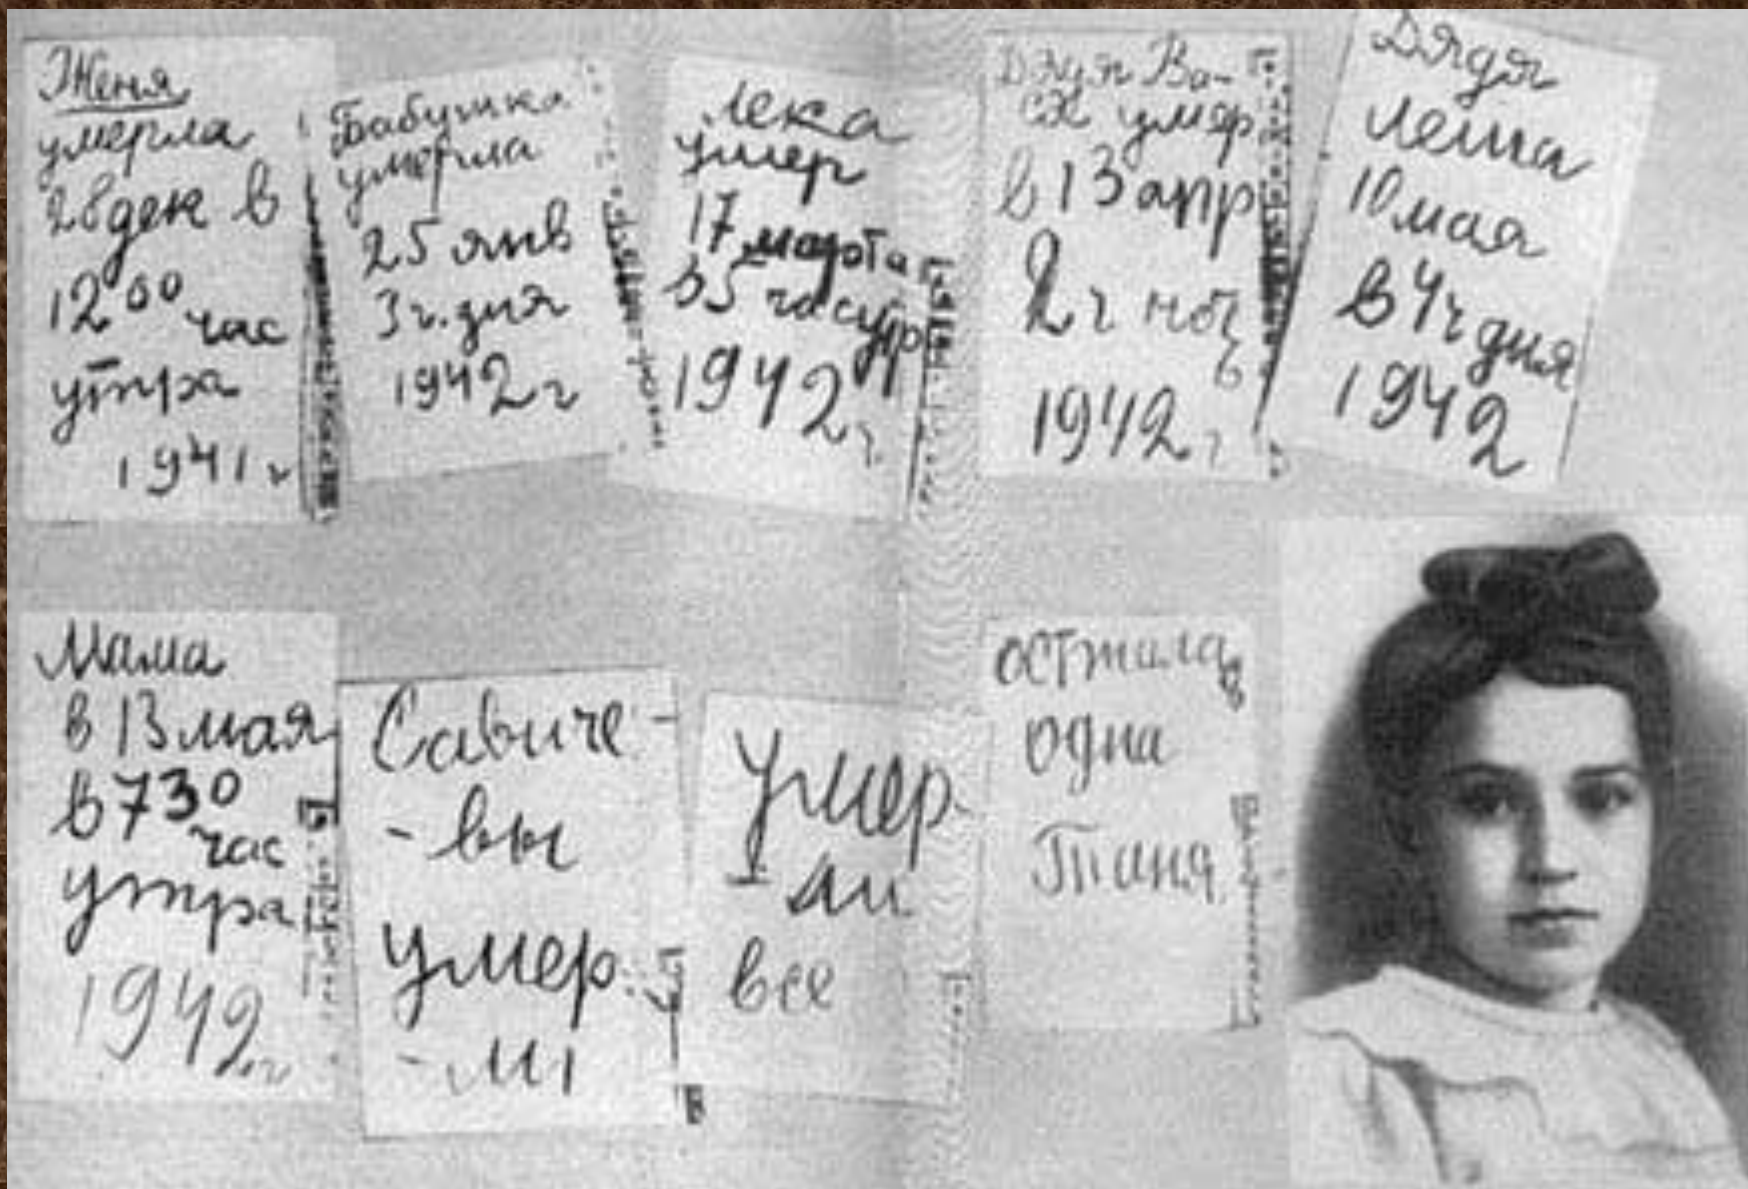 Женя
умерла
28 дек в
12 00 час
утра
1941 г
Бабушка
умерла
25 янв
3 ч. дня
1942 г
Лека
умер
17 марта
в 5 час утр
1942 г.
Дядя Ва-
ся умер
в 13 апр
2 ч ноч
ь
1942 г
Дядя
Леша
10 мая
в 4 ч дня
1942
Мама
в 13 мая
в 7 30
час
утра
1942 г
Савиче-
-вы
умер.
-ли
Умер-
-ли
все
Осталась
одна
Таня